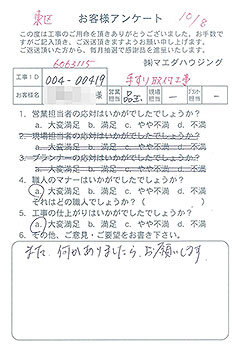 東区
お客様アンケート
10/8
この度は工事のご用命を頂きありがとうございました。お手数です
がご記入頂き、ご返送頂きますようお願い申し上げます。
ご返送頂いた方から、毎月抽選で感謝品を進呈します。
6063115
㈱マエダハウジング
工事ID 004-00419 手すり取付工事
様 営業担当 現場担当 - ｱｼｽﾄ担当 -
1. 営業担当者の応対はいかがでしたでしょうか?
a. 大変満足 b. 満足 c. やや不満 d. 不満
2. 現場担当者の応対はいかがでしたでしょうか?
a. 大変満足 b. 満足 c. やや不満 d. 不満
3. プランナーの応対はいかがでしたでしょうか?
a. 大変満足 b. 満足 c. やや不満 d. 不満
4. 職人のマナーはいかがでしたでしょうか?
a. 大変満足 b. 満足 c. やや不満 d. 不満
それはどの職人でしょうか?( )
5. 工事の仕上がりはいかがでしたでしょうか?
a. 大変満足 b. 満足 c. やや不満 d. 不満
6. その他、ご意見・ご要望をお書き下さい。
また、何かありましたら、お願いします。